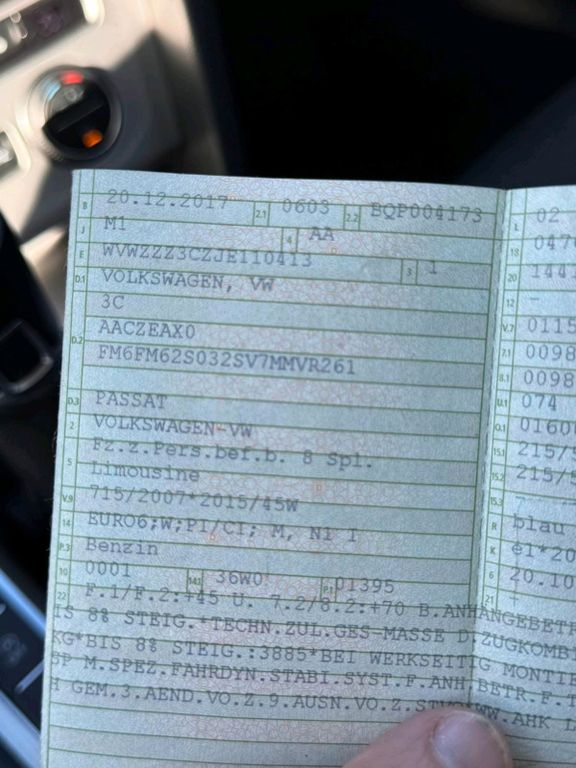 B 20.12.2017 2.1 0603 2.2 BQP004173 L 02
J M1 4 AA 18 047
E WVWZZZ3CZJE110413 3 1 20 144
D.1 VOLKSWAGEN, VW 12 -
3C V.7 0115
D.2 AACZEAX0 7.1 0098
FM6FM62S032SV7MMVR261 8.1 0098
U.1 074
D.3 PASSAT O.1 0160
2 VOLKSWAGEN-VW 15.1 215/5
5 Fz.z.Pers.bef.b. 8 Spl. 15.2 215/5
Limousine 15.3 -
V.9 715/2007*2015/45W R blau
14 EURO6;W;PI/CI; M, N1 I K e1*20
P.3 Benzin 6 20.10
10 0001 14.1 36W0 P.1 01395 21 -
22 F.1/F.2:+45 U. 7.2/8.2:+70 B.ANHANGEBETR
IS 8% STEIG.*TECHN.ZUL.GES-MASSE D.ZUGKOMBI
KG*BIS 8% STEIG.:3885*BEI WERKSEITIG MONTIE
SP M.SPEZ.FAHRDYN.STABI.SYST.F.ANH.BETR.F.T
GEM.3.AEND.VO.Z.9.AUSN.VO.Z. .AHK